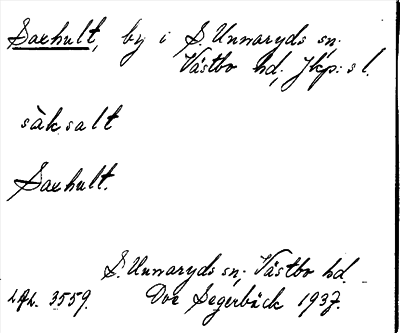 Saxhult, by i S. Unnaryds sn.
Västbo hd, Jkp: s l.
säksalt
Saxhult.
S. Unnaryds sn, Västbo hd.
3559. Segerbäck 1937.